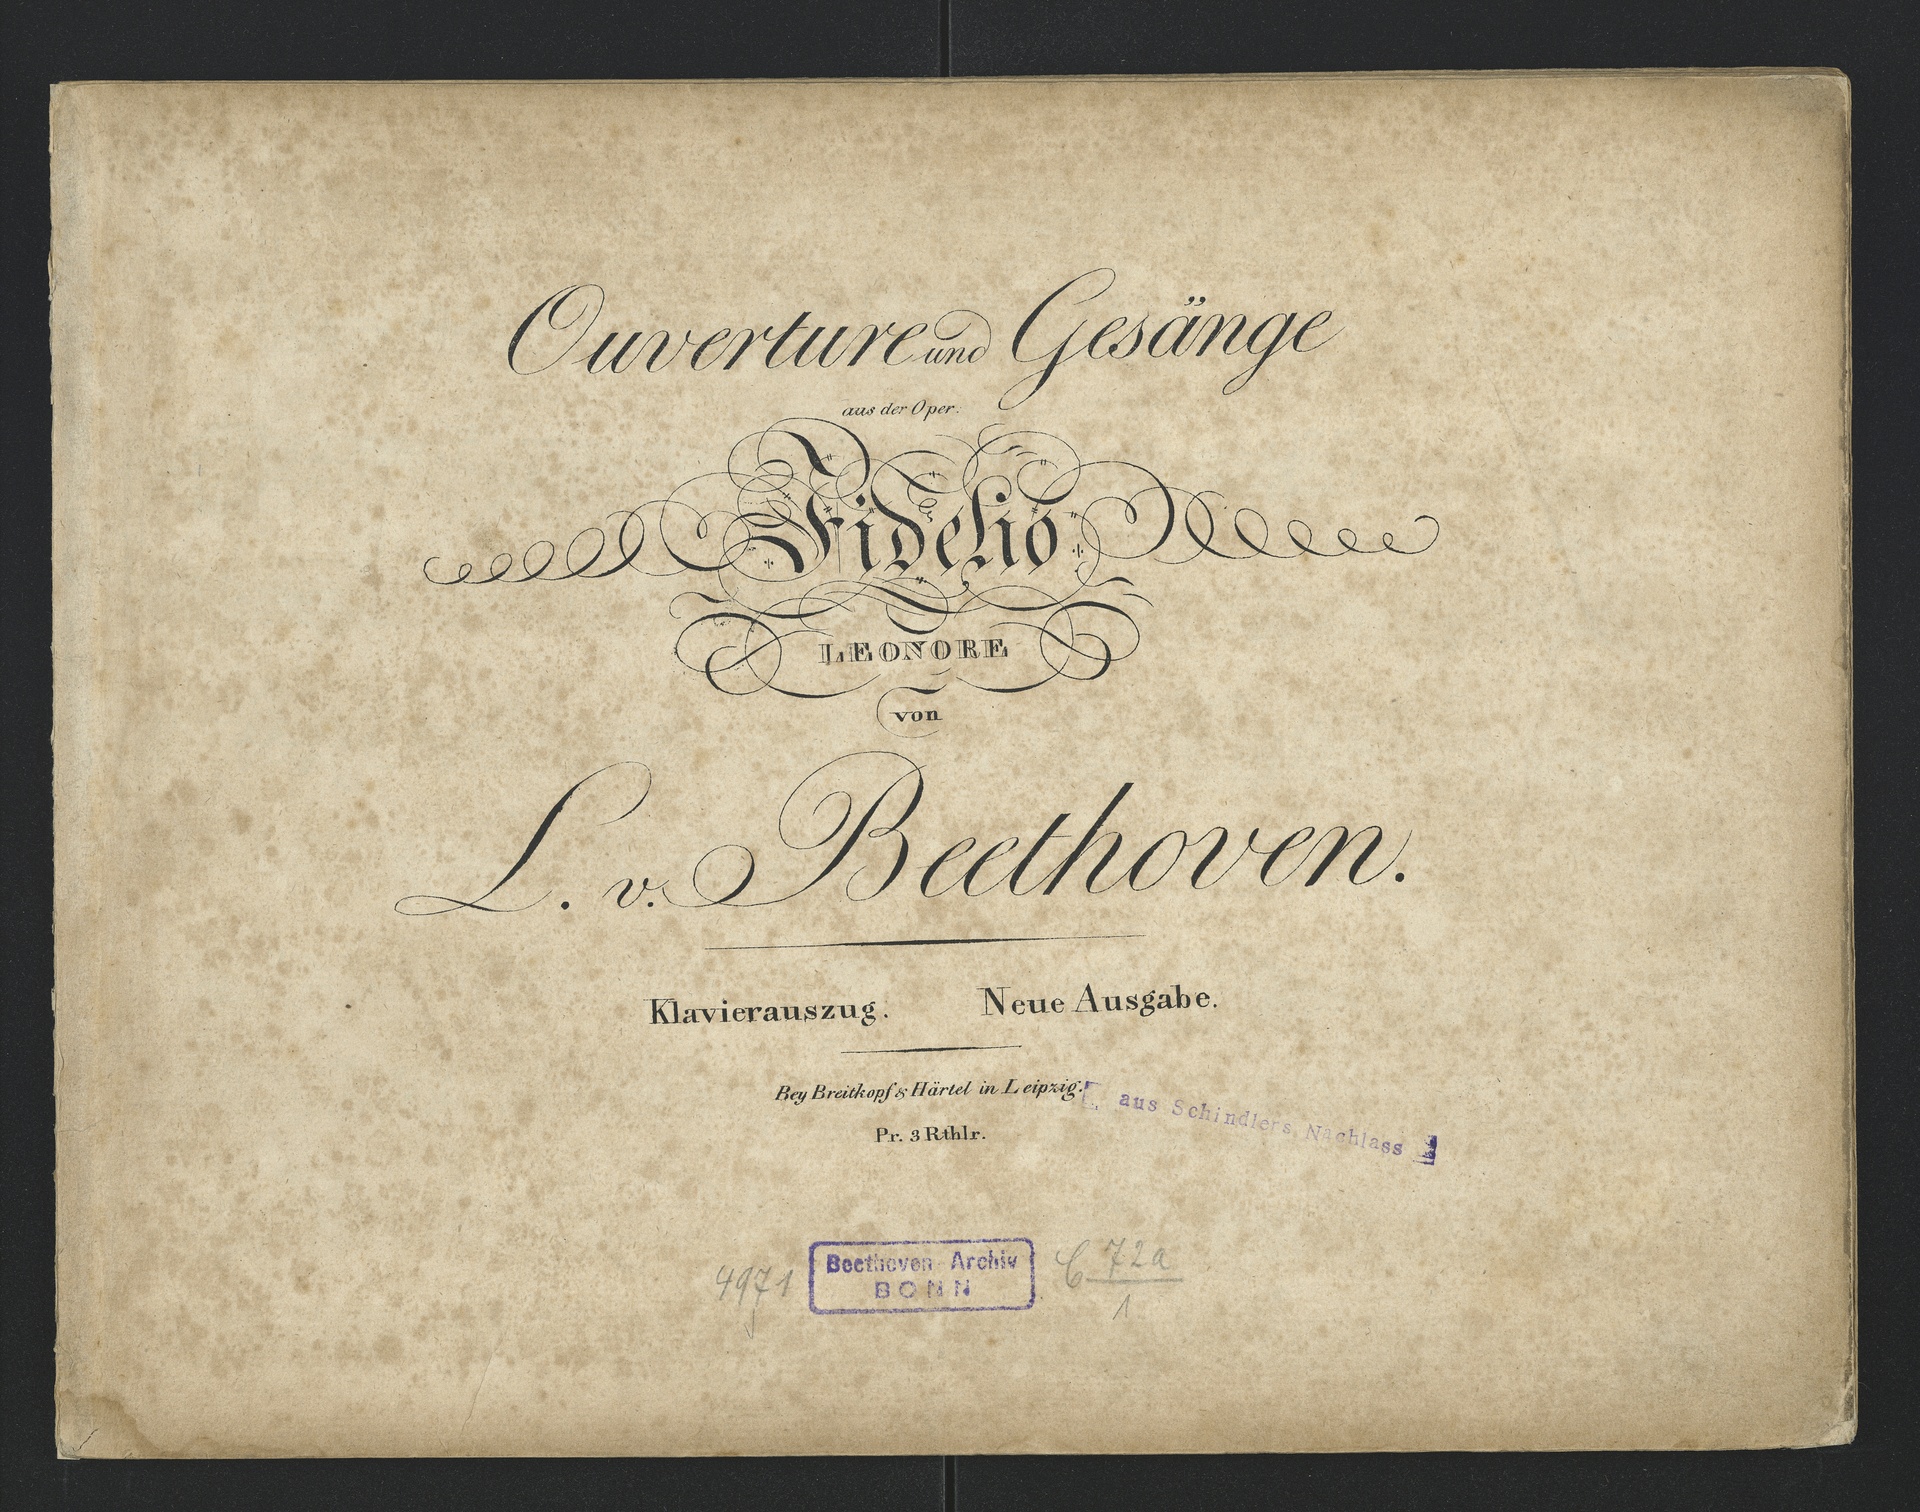 Ouverture und Gesänge
aus der Oper:
Fidelio
LEONORE
von
L. v. Beethoven.
Klavierauszug. Neue Ausgabe.
Bey Breitkopf & Härtel in Leipzig.
aus Schindlers Nachlass
Pr. 3 Rthlr.
4971
Beethoven-Archiv
BONN
C 72a
1